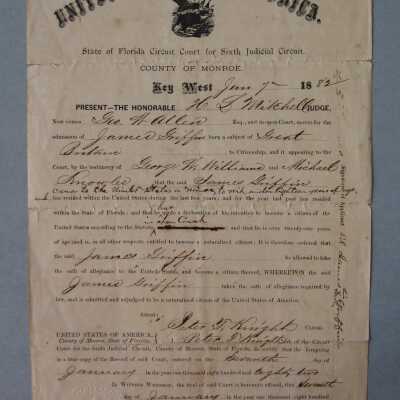 UNITED
State of Florida Circuit Court for Sixth Judicial Circuit.
COUNTY OF MONROE.
Key West Jany 7th 1882
PRESENT—THE HONORABLE H L Mitchell JUDGE,
Now comes Geo W Allen Esq., and in open Court, moves for the
admission of James Griffin born a subject of Great
Britain to Citizenship, and it appearing to the
Court, by the testimony of George W. Williams and Michael
Knowles that the said James Griffin
came to the United States a minor, to wit under Eighteen years of age,
has resided within the United States during the last five years; and for the year last past has resided
within the State of Florida; and that he
made a declaration of his intention to become a citizen of the
United States according to the Statute in open Court and that he is over twenty-one years
of age and is, in all other respects entitled to become a naturalized citizen. It is therefore ordered that
the said James Griffin be allowed to take
the oath of allegiance to the United States, and become a citizen thereof, WHEREUPON the said
James Griffin takes the oath of allegiance required by
law, and is admitted and adjudged to be a naturalized citizen of the United States of America.
Attest:
Peter T. Knight Clerk.
UNITED STATES OF AMERICA,
County of Monroe, State of Florida. Peter T. Knight Clerk of the Circuit
Court for the Sixth Judicial Circuit, County of Monroe, State of Florida, do certify that the foregoing
is a true copy of the Record of said Court, entered on the Seventh day of
January in the year one thousand eight hundred and eighty two
IN WITNESS WHEREOF, the Seal of said Court is hereunto affixed, this Seventh
day of January in the year one thousand eight hundred
James Griffin